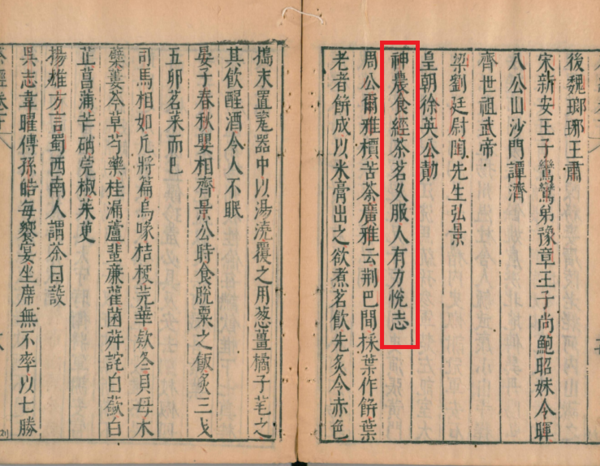 後魏瑯琊王肅
宋新安王子鸞鸞弟豫章王子尚鮑昭妹令暉
八公山沙門譚濟
齊世祖武帝
梁劉廷尉陶先生弘景
皇朝徐英公勣
神農食經茶茗久服人有力悅志
周公爾雅檟苦茶廣雅云荆巴間採葉作餅葉
老者餅成以米膏出之欲煮茗飲先炙令赤色
搗末置瓷器中以湯澆覆之用葱薑橘子芼之
其飲醒酒令人不眠
晏子春秋嬰相齊景公時食脫粟之飯炙三弋
五卵茗菜而巳
司馬相如凡將篇烏喙桔梗芫華款冬貝母木
蘗蔞芩草芍藥桂漏蘆蜚廉雚菌荈詫白蘞白
芷菖蒲芒硝莞椒茱萸
揚雄方言蜀西南人謂茶曰蔎
吳志韋曜傳孫皓每饗宴坐席無不率以七勝